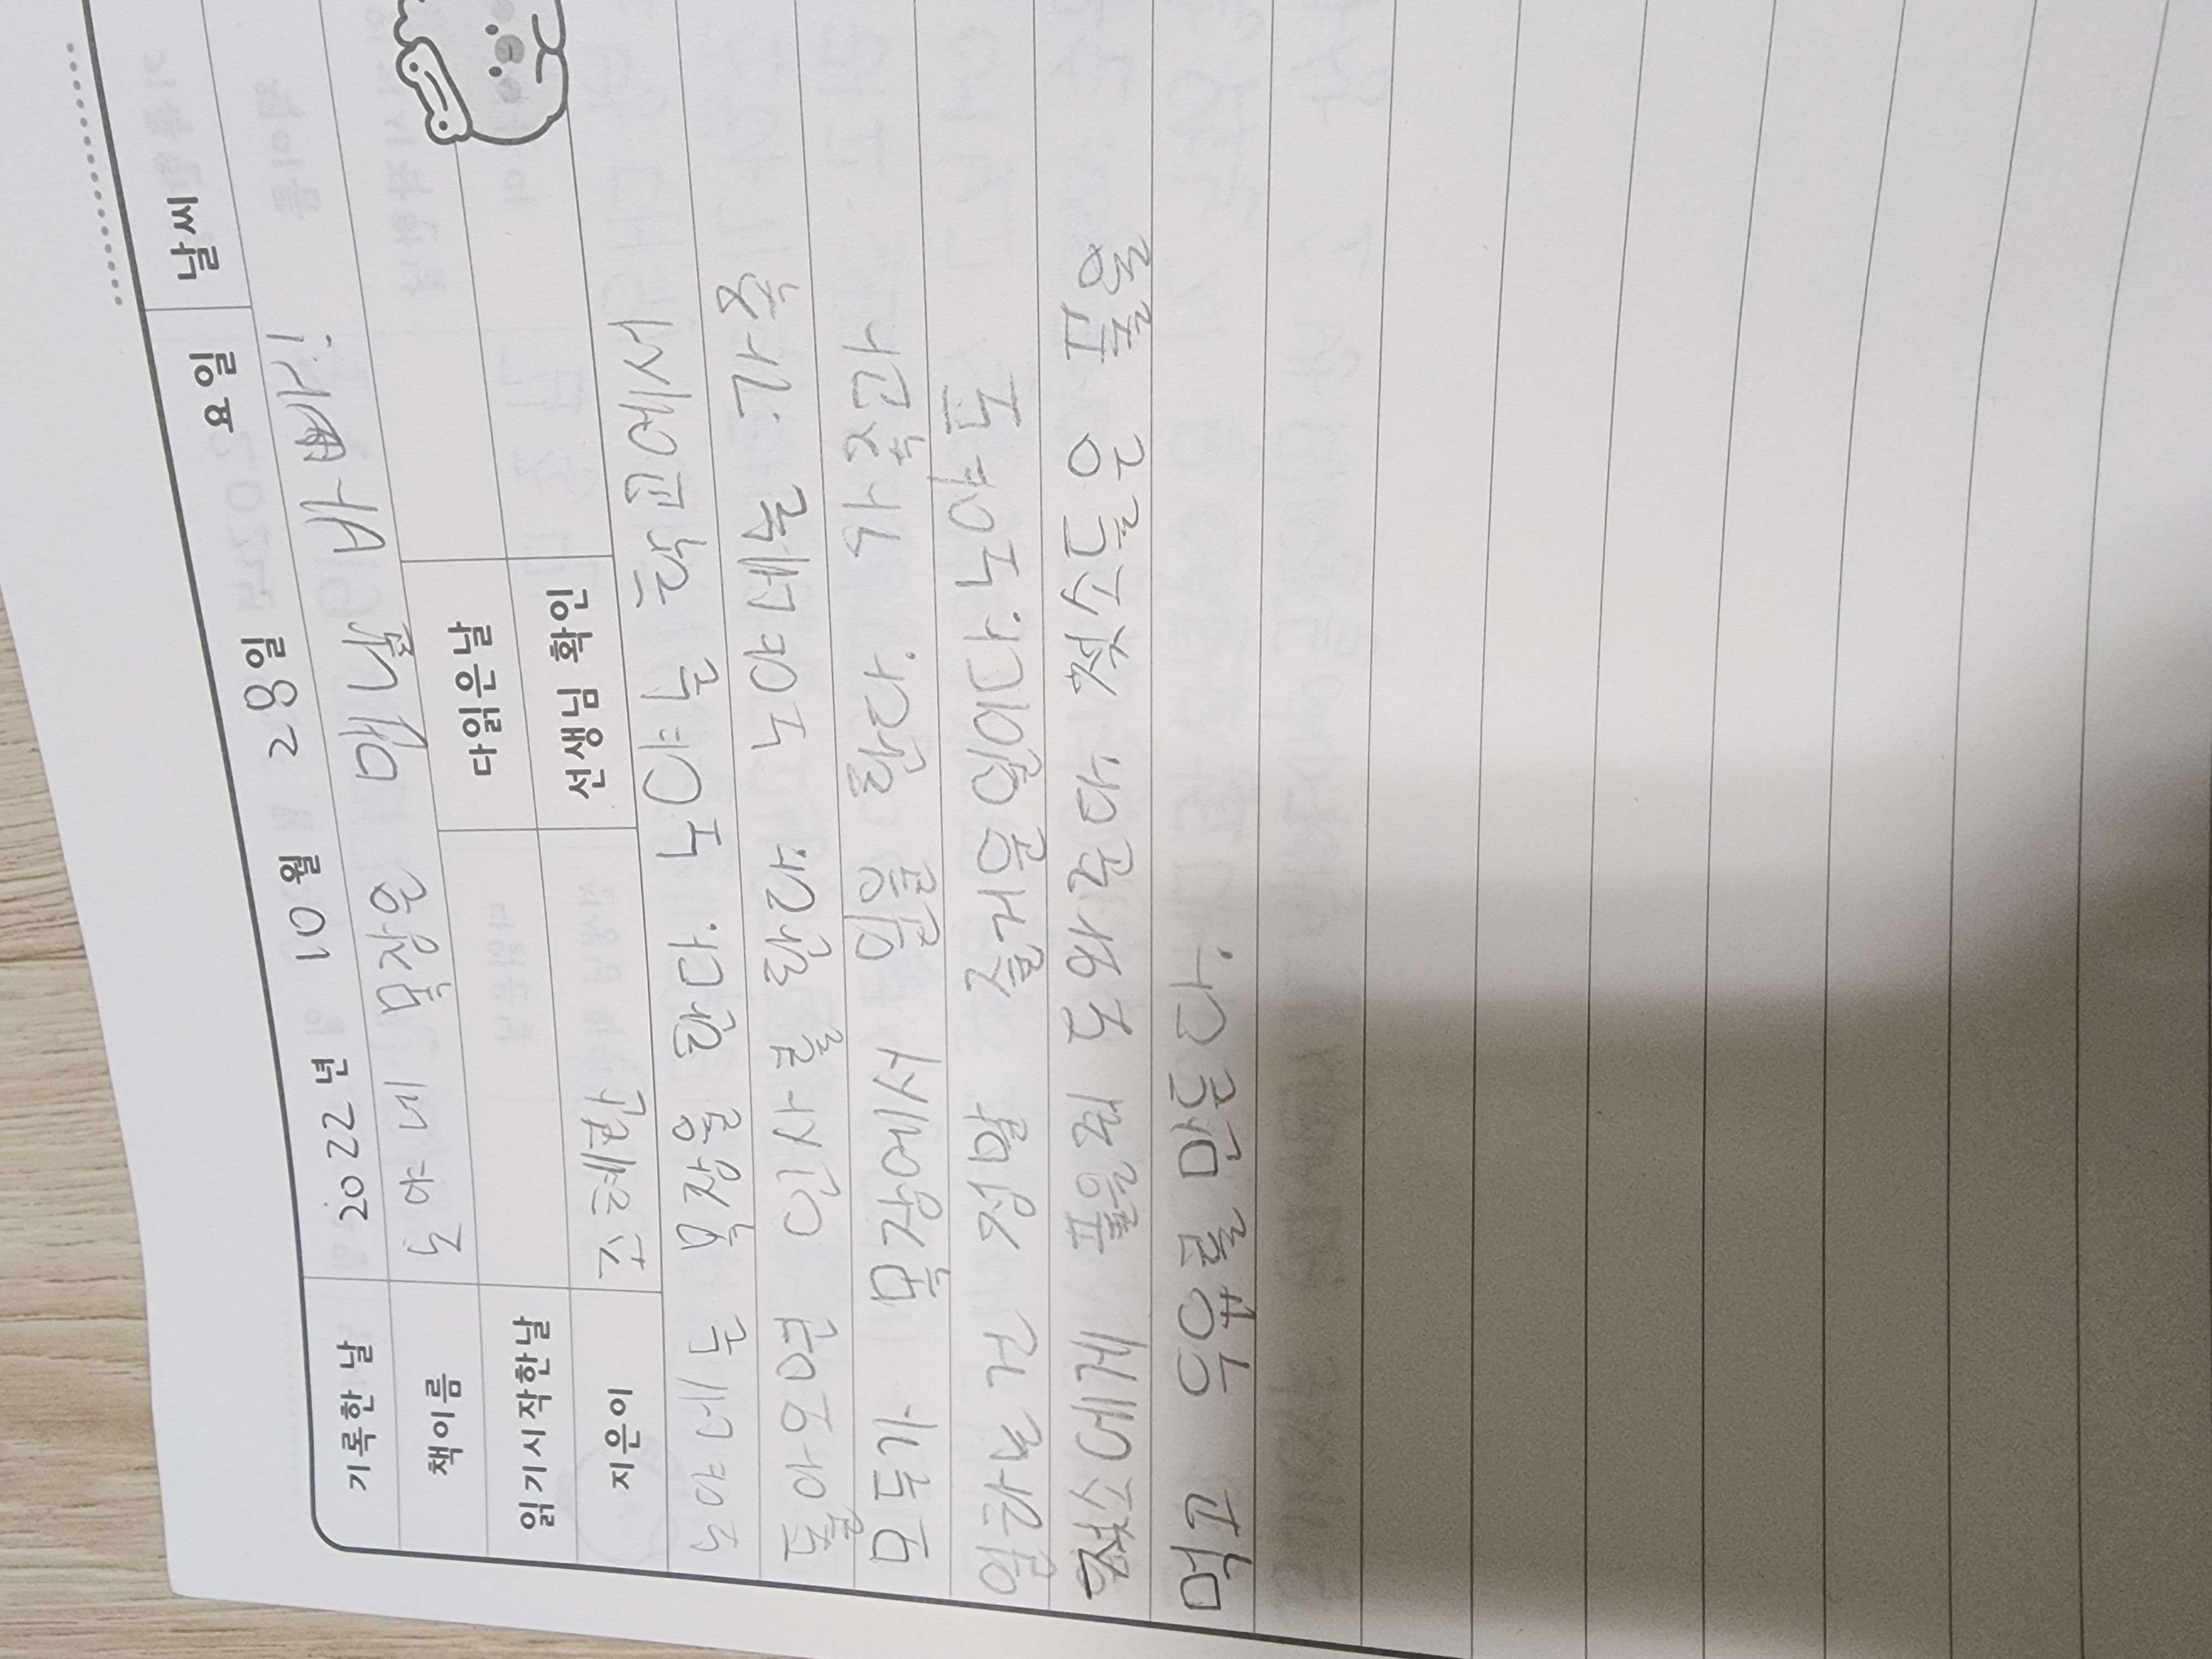 기록한 날 2022년 10월 28일 요일 날씨
책이름 노야네 목장은 맨날 바빠!
읽기시작한날 다읽은날
지은이 조혜란 선생님 확인
노야네는 목장을 한다. 노야는 학교에서
돌아오면 인사를 한다. 노야네는 가족
모두가 목장에서 일을 한다. 가족과
일하는건 정말 즐거운일이다. 노야도
젖소에게 풀을줘 도와준다. 젖소들은 풀을
먹고 우유를 만든다.